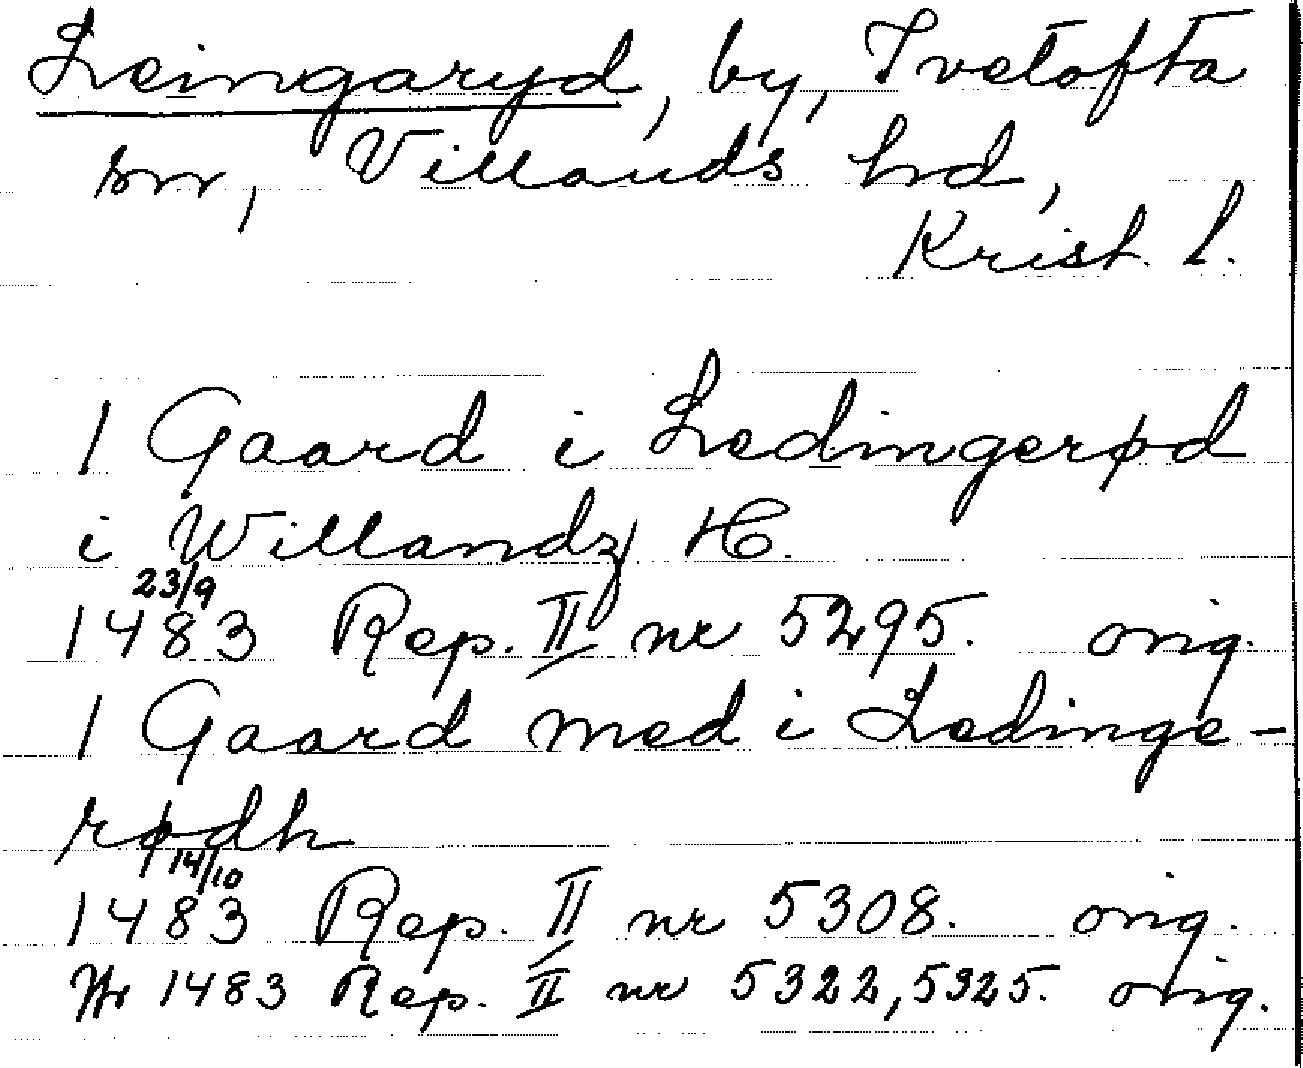 Leingaryd, by, Ivetofta
sn, Villands hd,
Krist. l.
1 Gaard i Ledingerød
i Willandz H.
23/9
1483 Rep. II nr 5295. orig.
1 Gaard med i Ledinge-
rødh
14/10
1483 Rep. II nr 5308. orig.
1483 Rep. II nr 5322, 5325. orig.